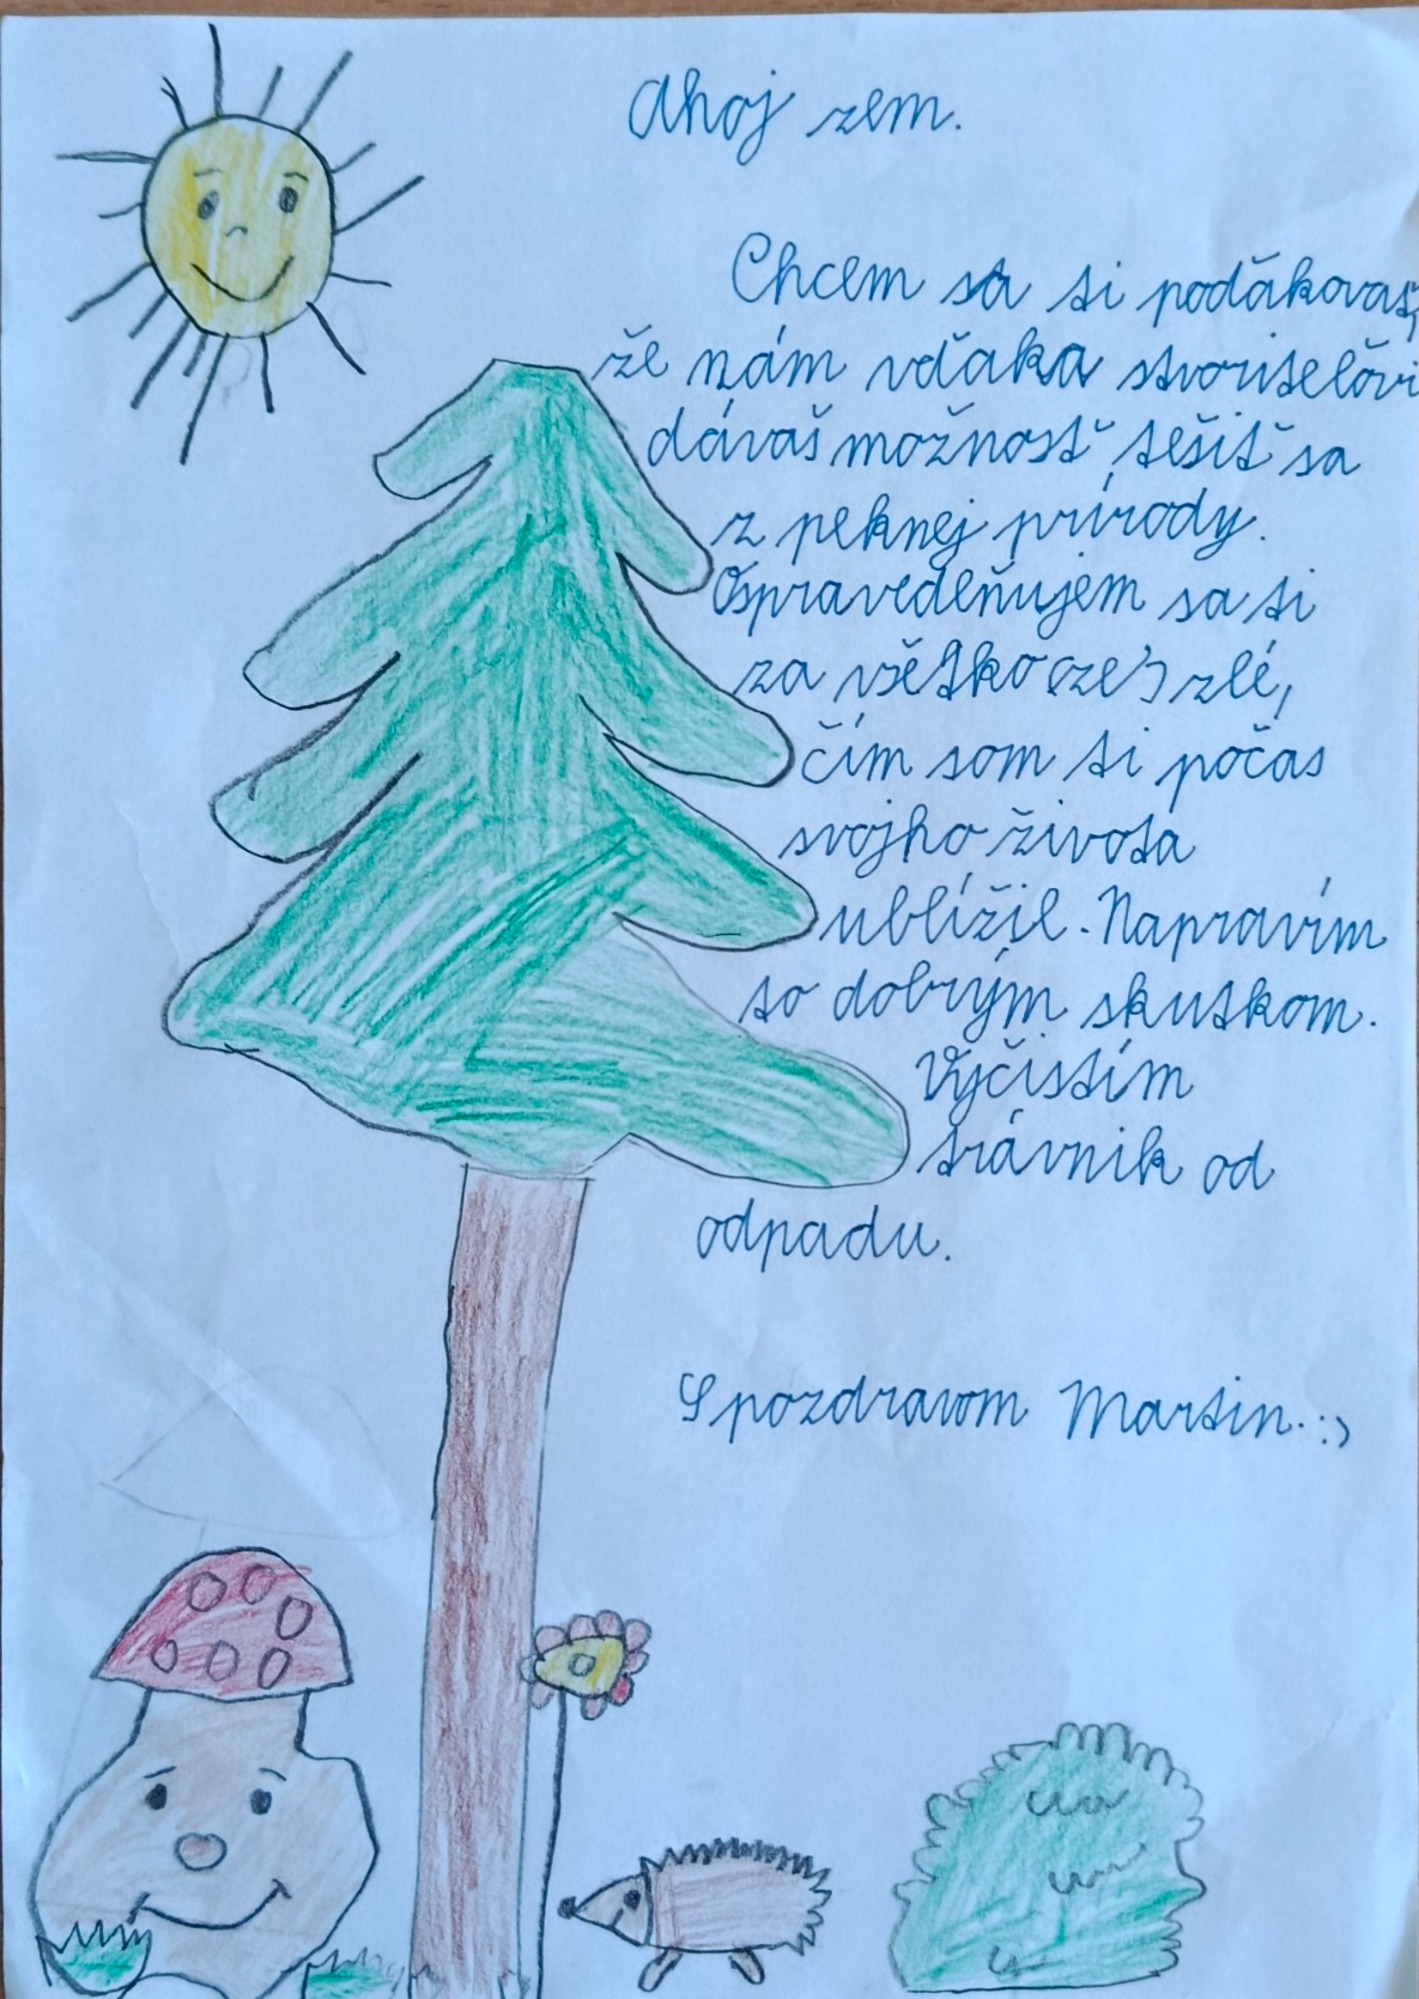 Ahoj zem.
Chcem sa ti poďakovať,
že nám vďaka stvoriteľovi
dávaš možnosť tešiť sa
z peknej prírody.
Ospravedeňujem sa ti
za všetko (ze) zlé,
čím som ti počas
svojho života
ublížil. Napravím
to dobrým skutkom.
Vyčistím
trávnik od
odpadu.
S pozdravom Martin. :)